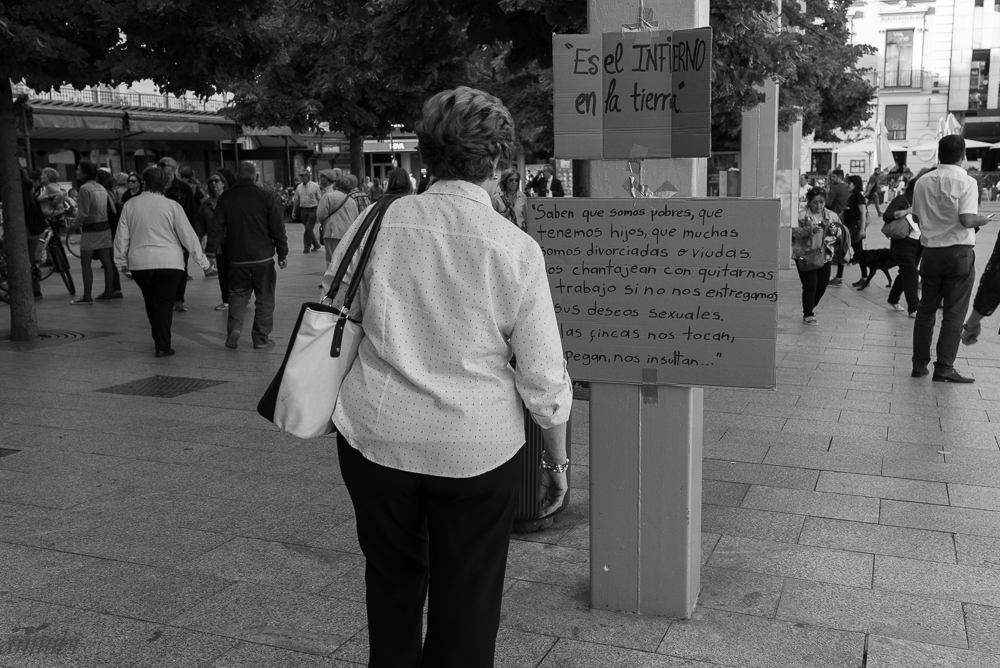 "Es el INFIERNO
en la tierra"
"Saben que somos pobres, que
tenemos hijos, que muchas
somos divorciadas o viudas.
os chantajean con quitarnos
trabajo si no nos entregamos
sus deseos sexuales.
las fincas nos tocan,
pegan, nos insultan..."
BBVA